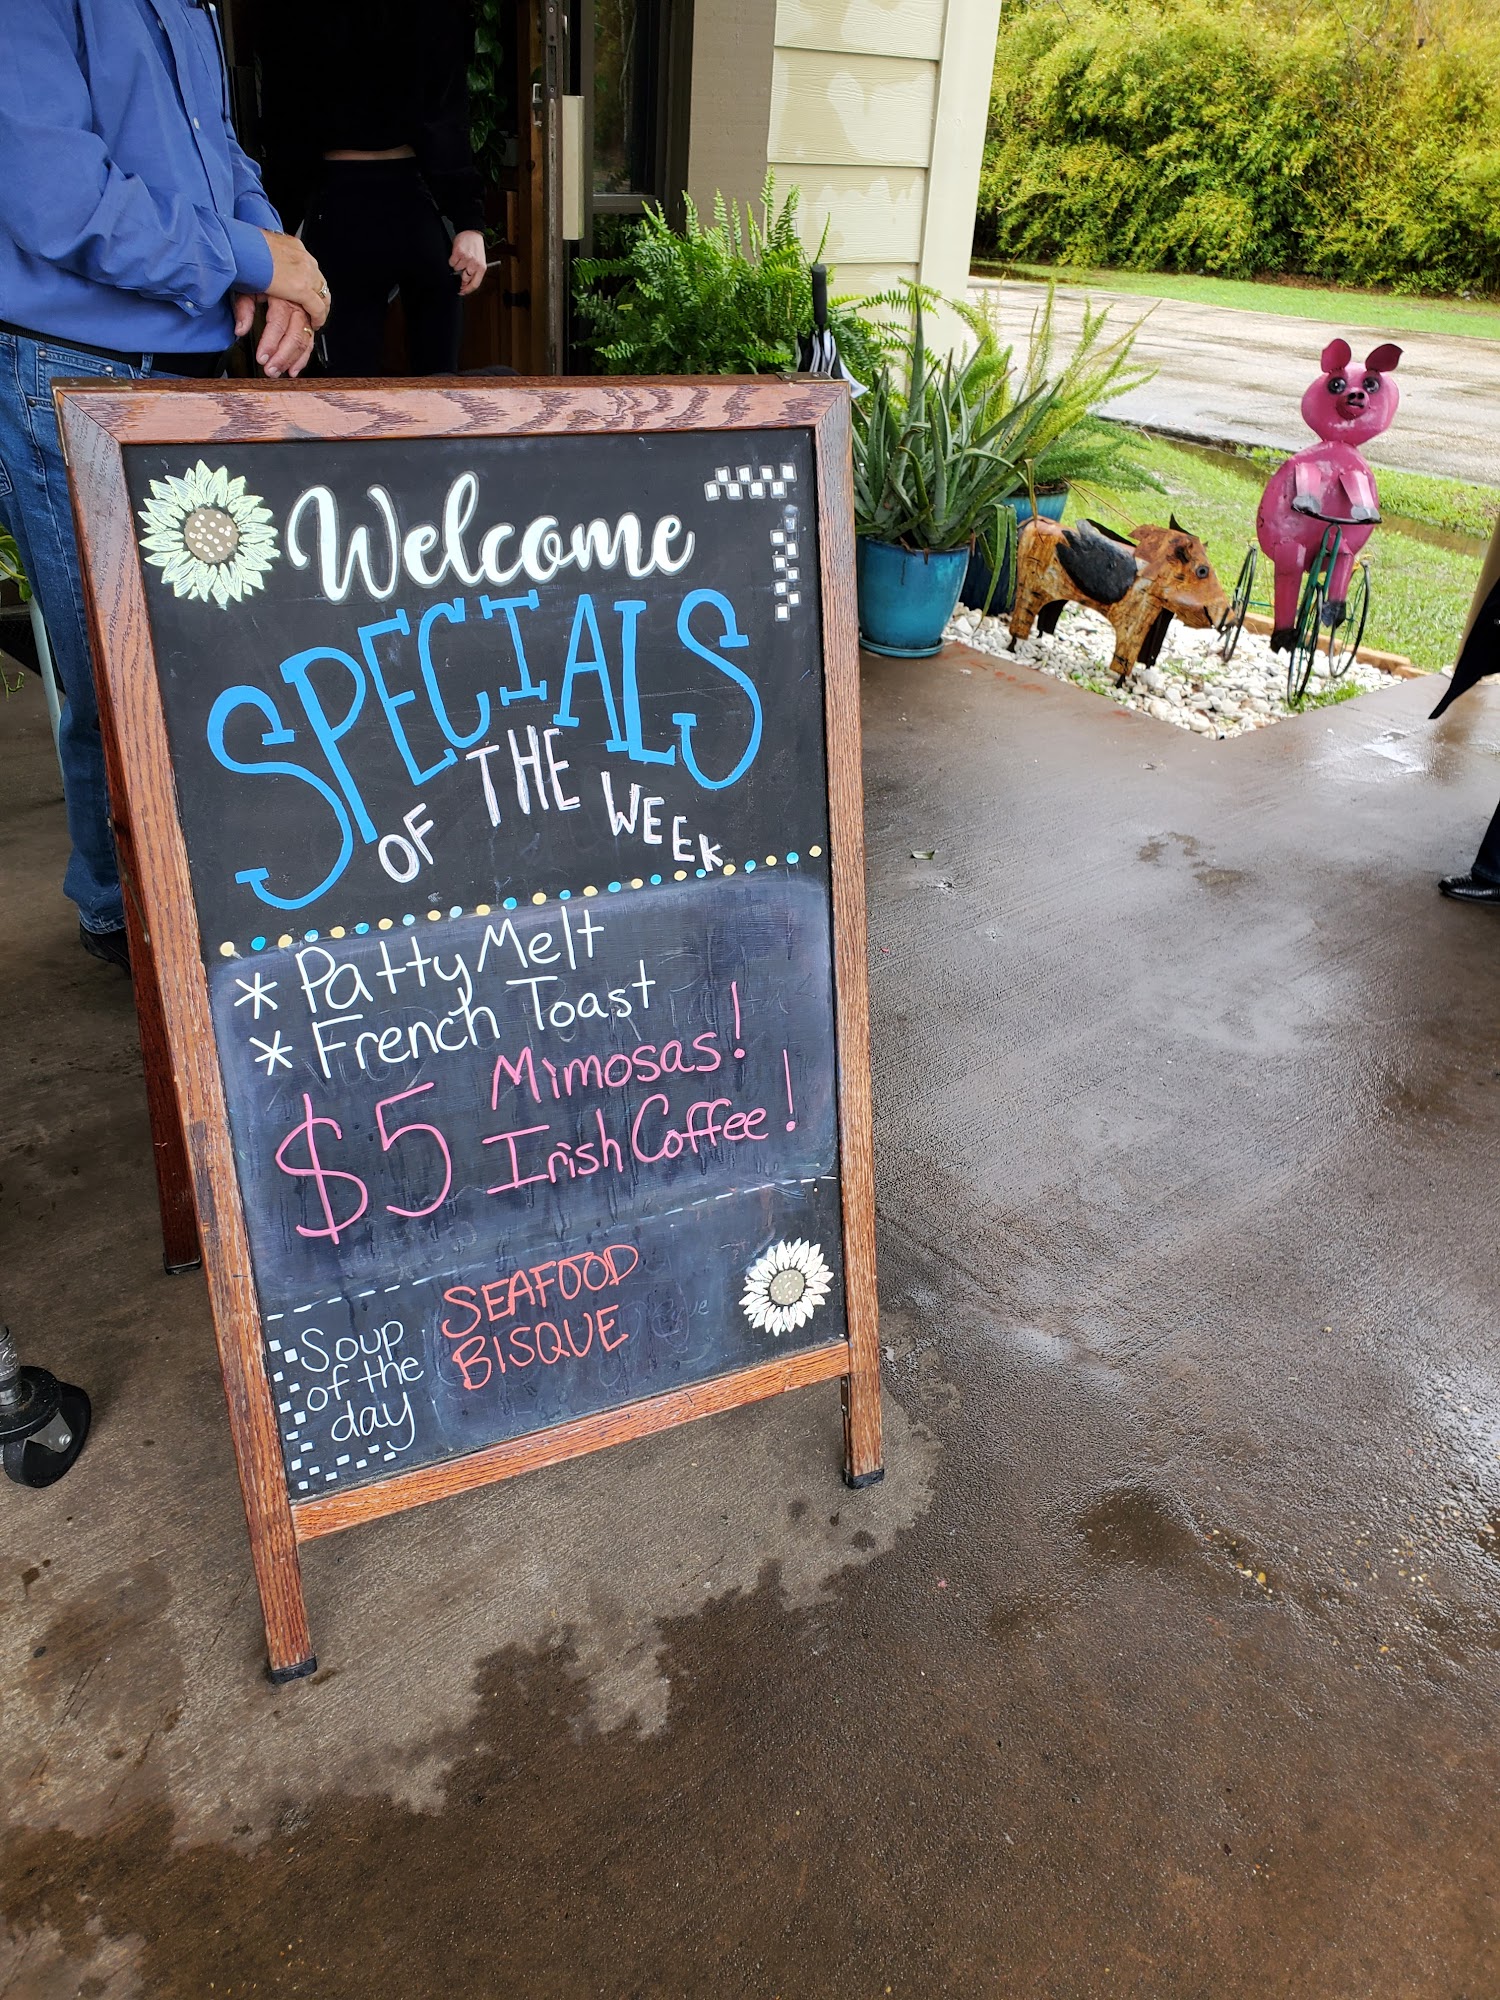 Welcome
SPECIALS
OF THE WEEK
* Patty Melt
* French Toast
$5 Mimosas!
Irish Coffee!
Soup
of the
day
SEAFOOD
BISQUE